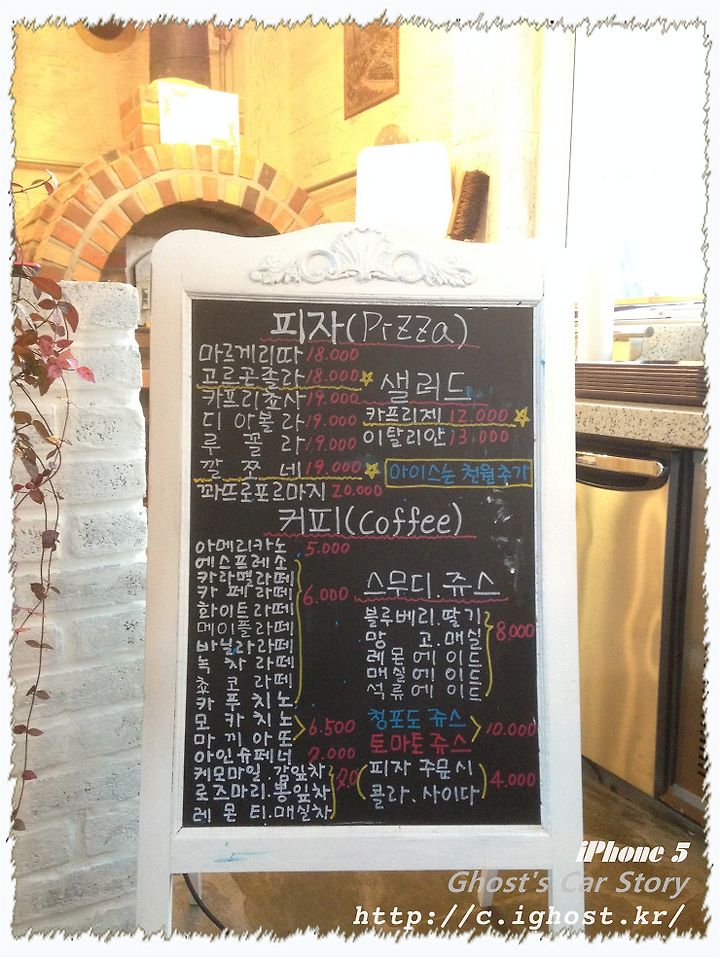 피자(Pizza)
마르게리따 18.000
고르곤졸라 18.000
카프리쵸사 19.000
디아볼라 19.000
루꼴라 19.000
깔쪼네 19.000
꽈뜨로포르마지 20.000
샐러드
카프리제 12.000
이탈리안 13.000
아이스는 천원추가
커피(Coffee)
아메리카노 5.000
에스프레소
카라멜라떼
카페라떼
화이트라떼
메이플라떼
바닐라라떼
녹차라떼
쵸코라떼
카푸치노
6.000
모카치노
마끼아또
6.500
아인슈페너 7.000
케모마일.감잎차
로즈마리.뽕잎차
레몬티.매실차
스무디.쥬스
블루베리.딸기
망고.매실
레몬에이드
매실에이드
석류에이드
8.000
청포도쥬스
토마토쥬스
10.000
피자 주문시
콜라.사이다
4.000
iPhone 5
Ghost's Car Story
http://c.ighost.kr/